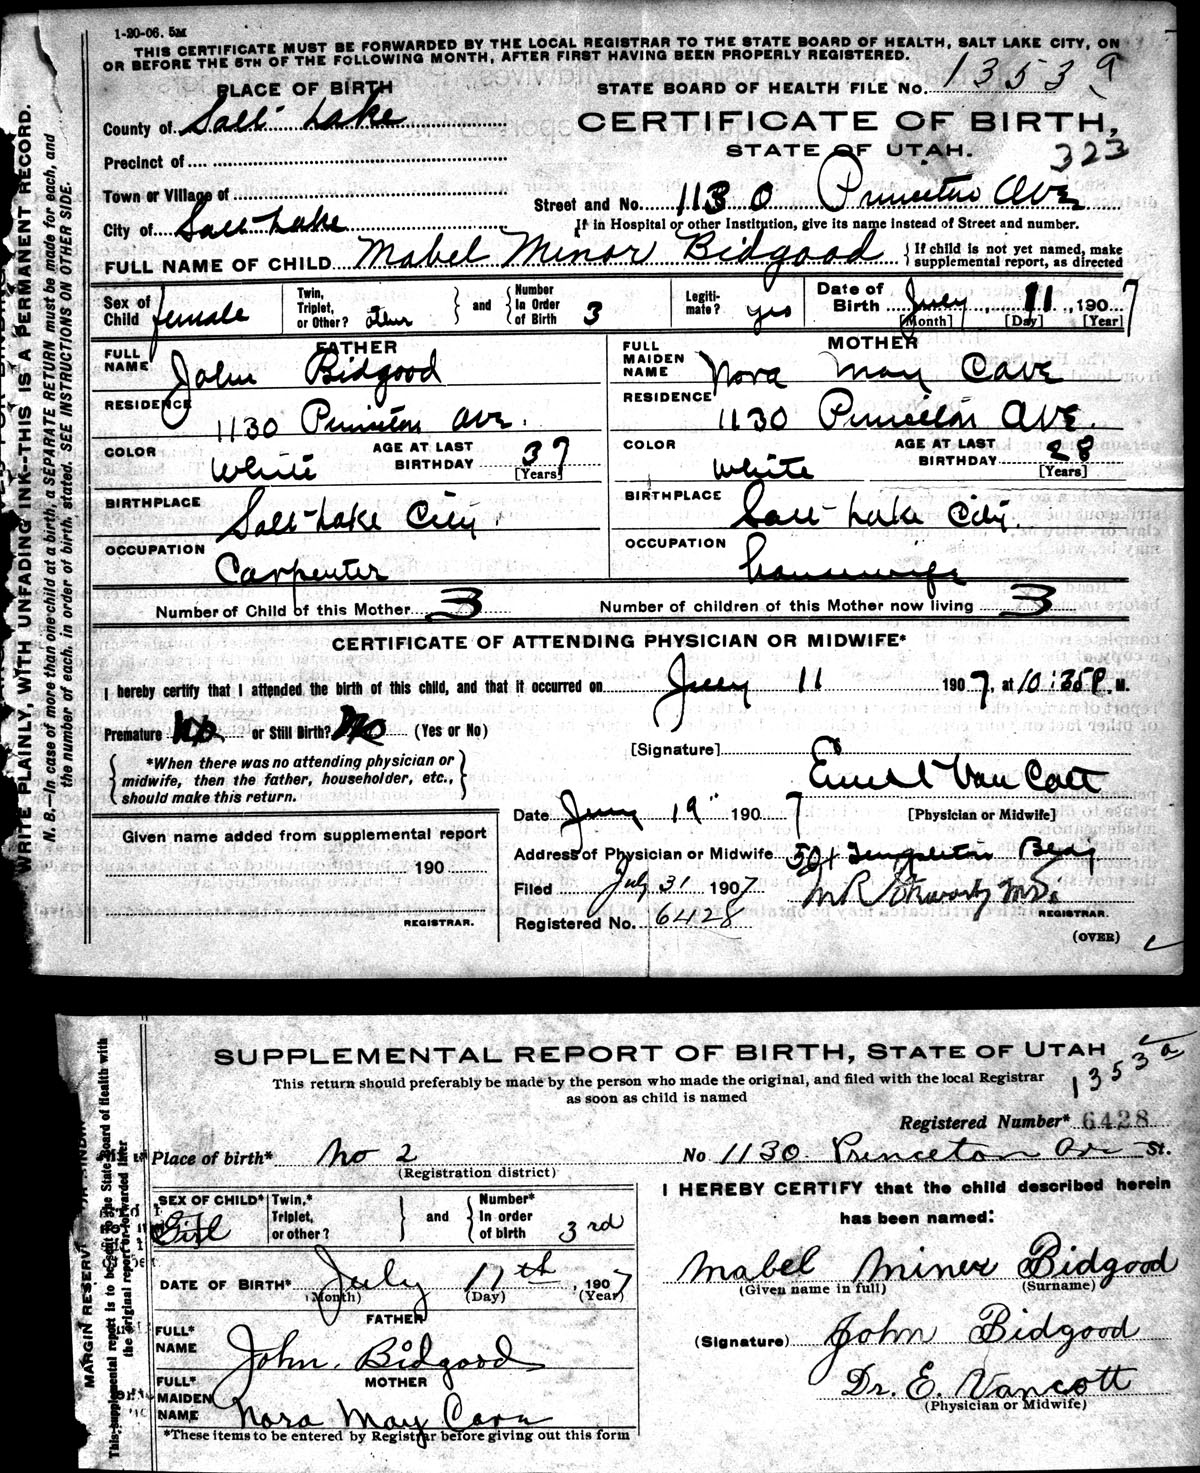 1-20-06. 5M
THIS CERTIFICATE MUST BE FORWARDED BY THE LOCAL REGISTRAR TO THE STATE BOARD OF HEALTH, SALT LAKE CITY, ON
OR BEFORE THE 5TH OF THE FOLLOWING MONTH, AFTER FIRST HAVING BEEN PROPERLY REGISTERED.
PLACE OF BIRTH
STATE BOARD OF HEALTH FILE No. 1353 a
County of Salt Lake
CERTIFICATE OF BIRTH,
Precinct of
STATE OF UTAH. 323
Town or Village of
Street and No. 1130 Princeton Ave
City of Salt Lake
If in Hospital or other Institution, give its name instead of Street and number.
FULL NAME OF CHILD Mabel Minor Bidgood { If child is not yet named, make
supplemental report, as directed
Sex of Child female Twin, Triplet, or Other? other } and { Number In Order of Birth 3 Legitimate? yes Date of Birth July 11, 1907
[Month] [Day] [Year]
FATHER MOTHER
FULL NAME John Bidgood FULL MAIDEN NAME Nora May Cave
RESIDENCE 1130 Princeton Ave. RESIDENCE 1130 Princeton Ave.
COLOR White AGE AT LAST BIRTHDAY 37 [Years] COLOR White AGE AT LAST BIRTHDAY 28 [Years]
BIRTHPLACE Salt Lake City. BIRTHPLACE Salt Lake City.
OCCUPATION Carpenter OCCUPATION housewife
Number of Child of this Mother 3 Number of children of this Mother now living 3
CERTIFICATE OF ATTENDING PHYSICIAN OR MIDWIFE*
I hereby certify that I attended the birth of this child, and that it occurred on July 11 1907, at 10:35 P. M.
Premature No or Still Birth? No (Yes or No)
*When there was no attending physician or
midwife, then the father, householder, etc.,
should make this return.
[Signature] Van Cott
[Physician or Midwife]
Date July 19" 1907
Address of Physician or Midwife 501 Templeton Bldg
Filed July 31 1907 M.D.
REGISTRAR.
Registered No. 6428
(OVER)
Given name added from supplemental report
190
REGISTRAR.
WRITE PLAINLY, WITH UNFADING INK--THIS IS A PERMANENT RECORD.
N. B.--In case of more than one child at a birth, a SEPARATE RETURN must be made for each, and
the number of each, in order of birth, stated. SEE INSTRUCTIONS ON OTHER SIDE.
SUPPLEMENTAL REPORT OF BIRTH, STATE OF UTAH
1353 a
This return should preferably be made by the person who made the original, and filed with the local Registrar
as soon as child is named
Registered Number* 6428
Place of birth* No 2 No 1130 Princeton Ave St.
(Registration district)
SEX OF CHILD* Girl Twin,* Triplet, or other? } and { Number* In order of birth 3rd
DATE OF BIRTH* July 11th, 1907
(Month) (Day) (Year)
FATHER
FULL* NAME John Bidgood
MOTHER
FULL* MAIDEN NAME Nora May Cave
*These items to be entered by Registrar before giving out this form
I HEREBY CERTIFY that the child described herein
has been named:
Mabel Miner Bidgood
(Given name in full) (Surname)
(Signature) John Bidgood
Dr. E. Vancott
(Physician or Midwife)
This supplemental report is to be sent to the State Board of Health with
the original report or forwarded later